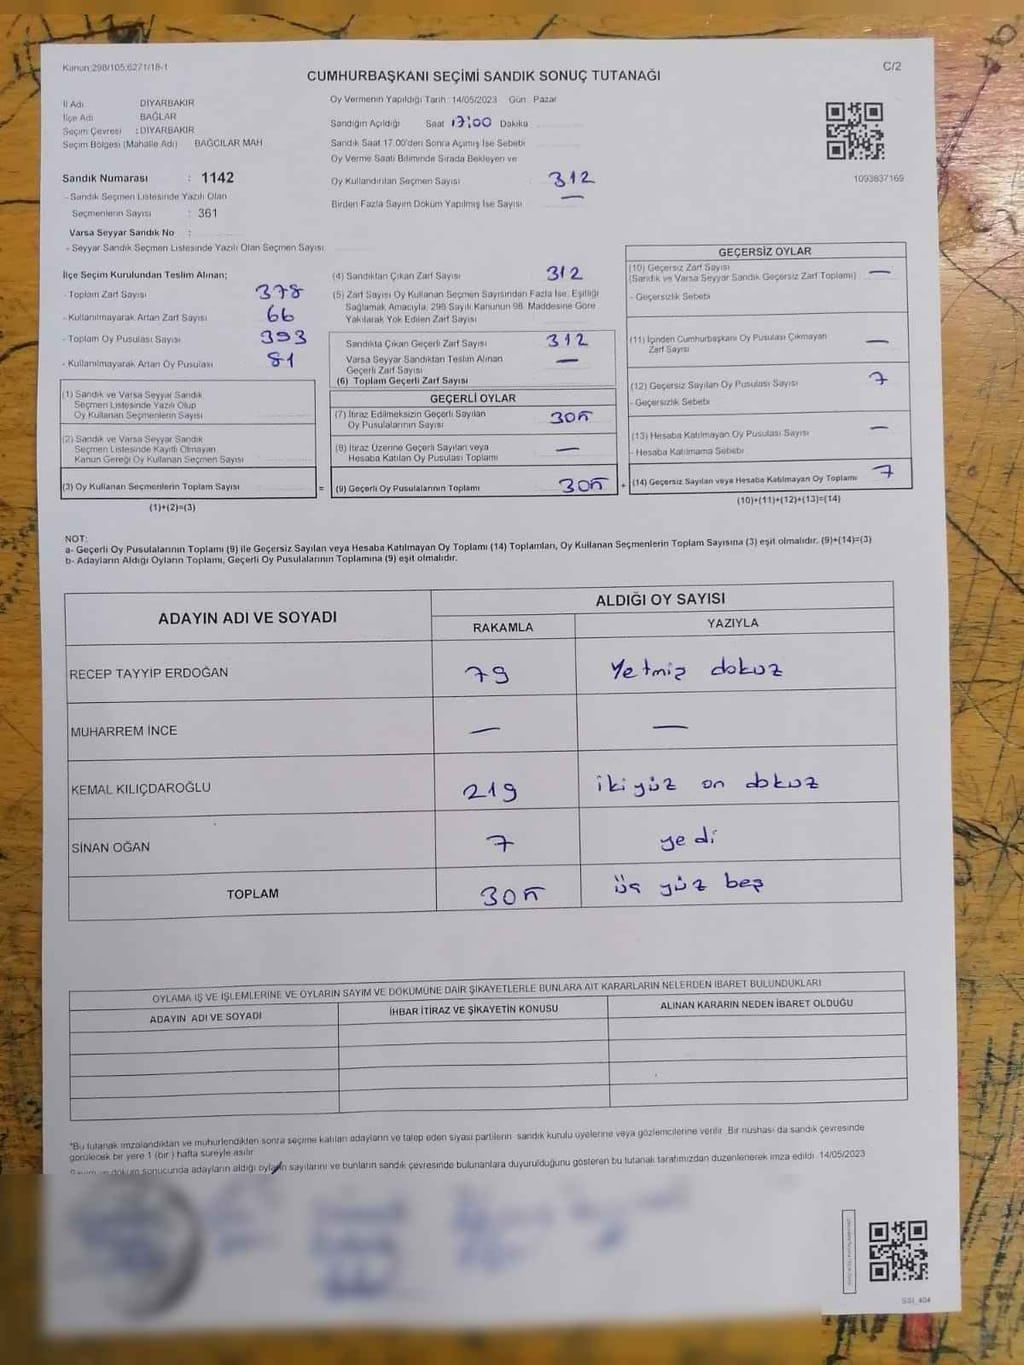 Kanun 298/105,6271/18-1
C/2
CUMHURBAŞKANI SEÇİMİ SANDIK SONUÇ TUTANAĞI
İl Adı DİYARBAKIR
İlçe Adı BAĞLAR
Seçim Çevresi : DİYARBAKIR
Seçim Bölgesi (Mahalle Adı) BAĞCILAR MAH
Oy Vermenin Yapıldığı Tarih 14/05/2023 Gün Pazar
Sandığın Açıldığı Saat 17:00 Dakika
Sandık Saat 17.00'den Sonra Açımış İse Sebebi
Oy Verme Saati Bitiminde Sırada Bekleyen ve
Oy Kullandırılan Seçmen Sayısı : 312
Birden Fazla Sayım Döküm Yapılmış İse Sayısı —
1093837169
Sandık Numarası : 1142
- Sandık Seçmen Listesinde Yazılı Olan
Seçmenlerin Sayısı : 361
Varsa Seyyar Sandık No :
- Seyyar Sandık Seçmen Listesinde Yazılı Olan Seçmen Sayısı
İlçe Seçim Kurulundan Teslim Alınan;
- Toplam Zarf Sayısı 378
- Kullanılmayarak Artan Zarf Sayısı 66
- Toplam Oy Pusulası Sayısı 393
- Kullanılmayarak Artan Oy Pusulası 81
(1) Sandık ve Varsa Seyyar Sandık
Seçmen Listesinde Yazılı Olup
Oy Kullanan Seçmenlerin Sayısı
(2) Sandık ve Varsa Seyyar Sandık
Seçmen Listesinde Kayıtlı Olmayan
Kanun Gereği Oy Kullanan Seçmen Sayısı
(3) Oy Kullanan Seçmenlerin Toplam Sayısı
(1)+(2)=(3)
(4) Sandıktan Çıkan Zarf Sayısı 312
(5) Zarf Sayısı Oy Kullanan Seçmen Sayısından Fazla İse, Eşitliği
Sağlamak Amacıyla, 298 Sayılı Kanunun 98. Maddesine Göre
Yakılarak Yok Edilen Zarf Sayısı
Sandıkta Çıkan Geçerli Zarf Sayısı 312
Varsa Seyyar Sandıktan Teslim Alınan
Geçerli Zarf Sayısı —
(6) Toplam Geçerli Zarf Sayısı
GEÇERLİ OYLAR
(7) İtiraz Edilmeksizin Geçerli Sayılan
Oy Pusulalarının Sayısı 305
(8) İtiraz Üzerine Geçerli Sayılan veya
Hesaba Katılan Oy Pusulası Toplamı —
= (9) Geçerli Oy Pusulalarının Toplamı 305 +
GEÇERSİZ OYLAR
(10) Geçersiz Zarf Sayısı
(Sandık ve Varsa Seyyar Sandık Geçersiz Zarf Toplamı) —
- Geçersizlik Sebebi
(11) İçinden Cumhurbaşkanı Oy Pusulası Çıkmayan
Zarf Sayısı —
(12) Geçersiz Sayılan Oy Pusulası Sayısı 7
- Geçersizlik Sebebi
(13) Hesaba Katılmayan Oy Pusulası Sayısı —
- Hesaba Katılmama Sebebi
(14) Geçersiz Sayılan veya Hesaba Katılmayan Oy Toplamı 7
(10)+(11)+(12)+(13)=(14)
NOT:
a- Geçerli Oy Pusulalarının Toplamı (9) ile Geçersiz Sayılan veya Hesaba Katılmayan Oy Toplamı (14) Toplamları, Oy Kullanan Seçmenlerin Toplam Sayısına (3) eşit olmalıdır. (9)+(14)=(3)
b- Adayların Aldığı Oyların Toplamı, Geçerli Oy Pusulalarının Toplamına (9) eşit olmalıdır.
ADAYIN ADI VE SOYADI
ALDIĞI OY SAYISI
RAKAMLA YAZIYLA
RECEP TAYYİP ERDOĞAN 79 Yetmiş dokuz
MUHARREM İNCE — —
KEMAL KILIÇDAROĞLU 219 iki yüz on dokuz
SİNAN OĞAN 7 yedi
TOPLAM 305 üç yüz beş
OYLAMA İŞ VE İŞLEMLERİNE VE OYLARIN SAYIM VE DÖKÜMÜNE DAİR ŞİKAYETLERLE BUNLARA AİT KARARLARIN NELERDEN İBARET BULUNDUKLARI
ADAYIN ADI VE SOYADI İHBAR İTİRAZ VE ŞİKAYETİN KONUSU ALINAN KARARIN NEDEN İBARET OLDUĞU
*Bu tutanak imzalandıktan ve mühürlendikten sonra seçime katılan adayların ve talep eden siyasi partilerin sandık kurulu üyelerine veya gözlemcilerine verilir. Bir nüshası da sandık çevresinde
görülecek bir yere 1 (bir) hafta süreyle asılır
döküm sonucunda adayların aldığı oyların sayılarını ve bunların sandık çevresinde bulunanlara duyurulduğunu gösteren bu tutanak tarafımızdan düzenlenerek imza edildi. 14/05/2023